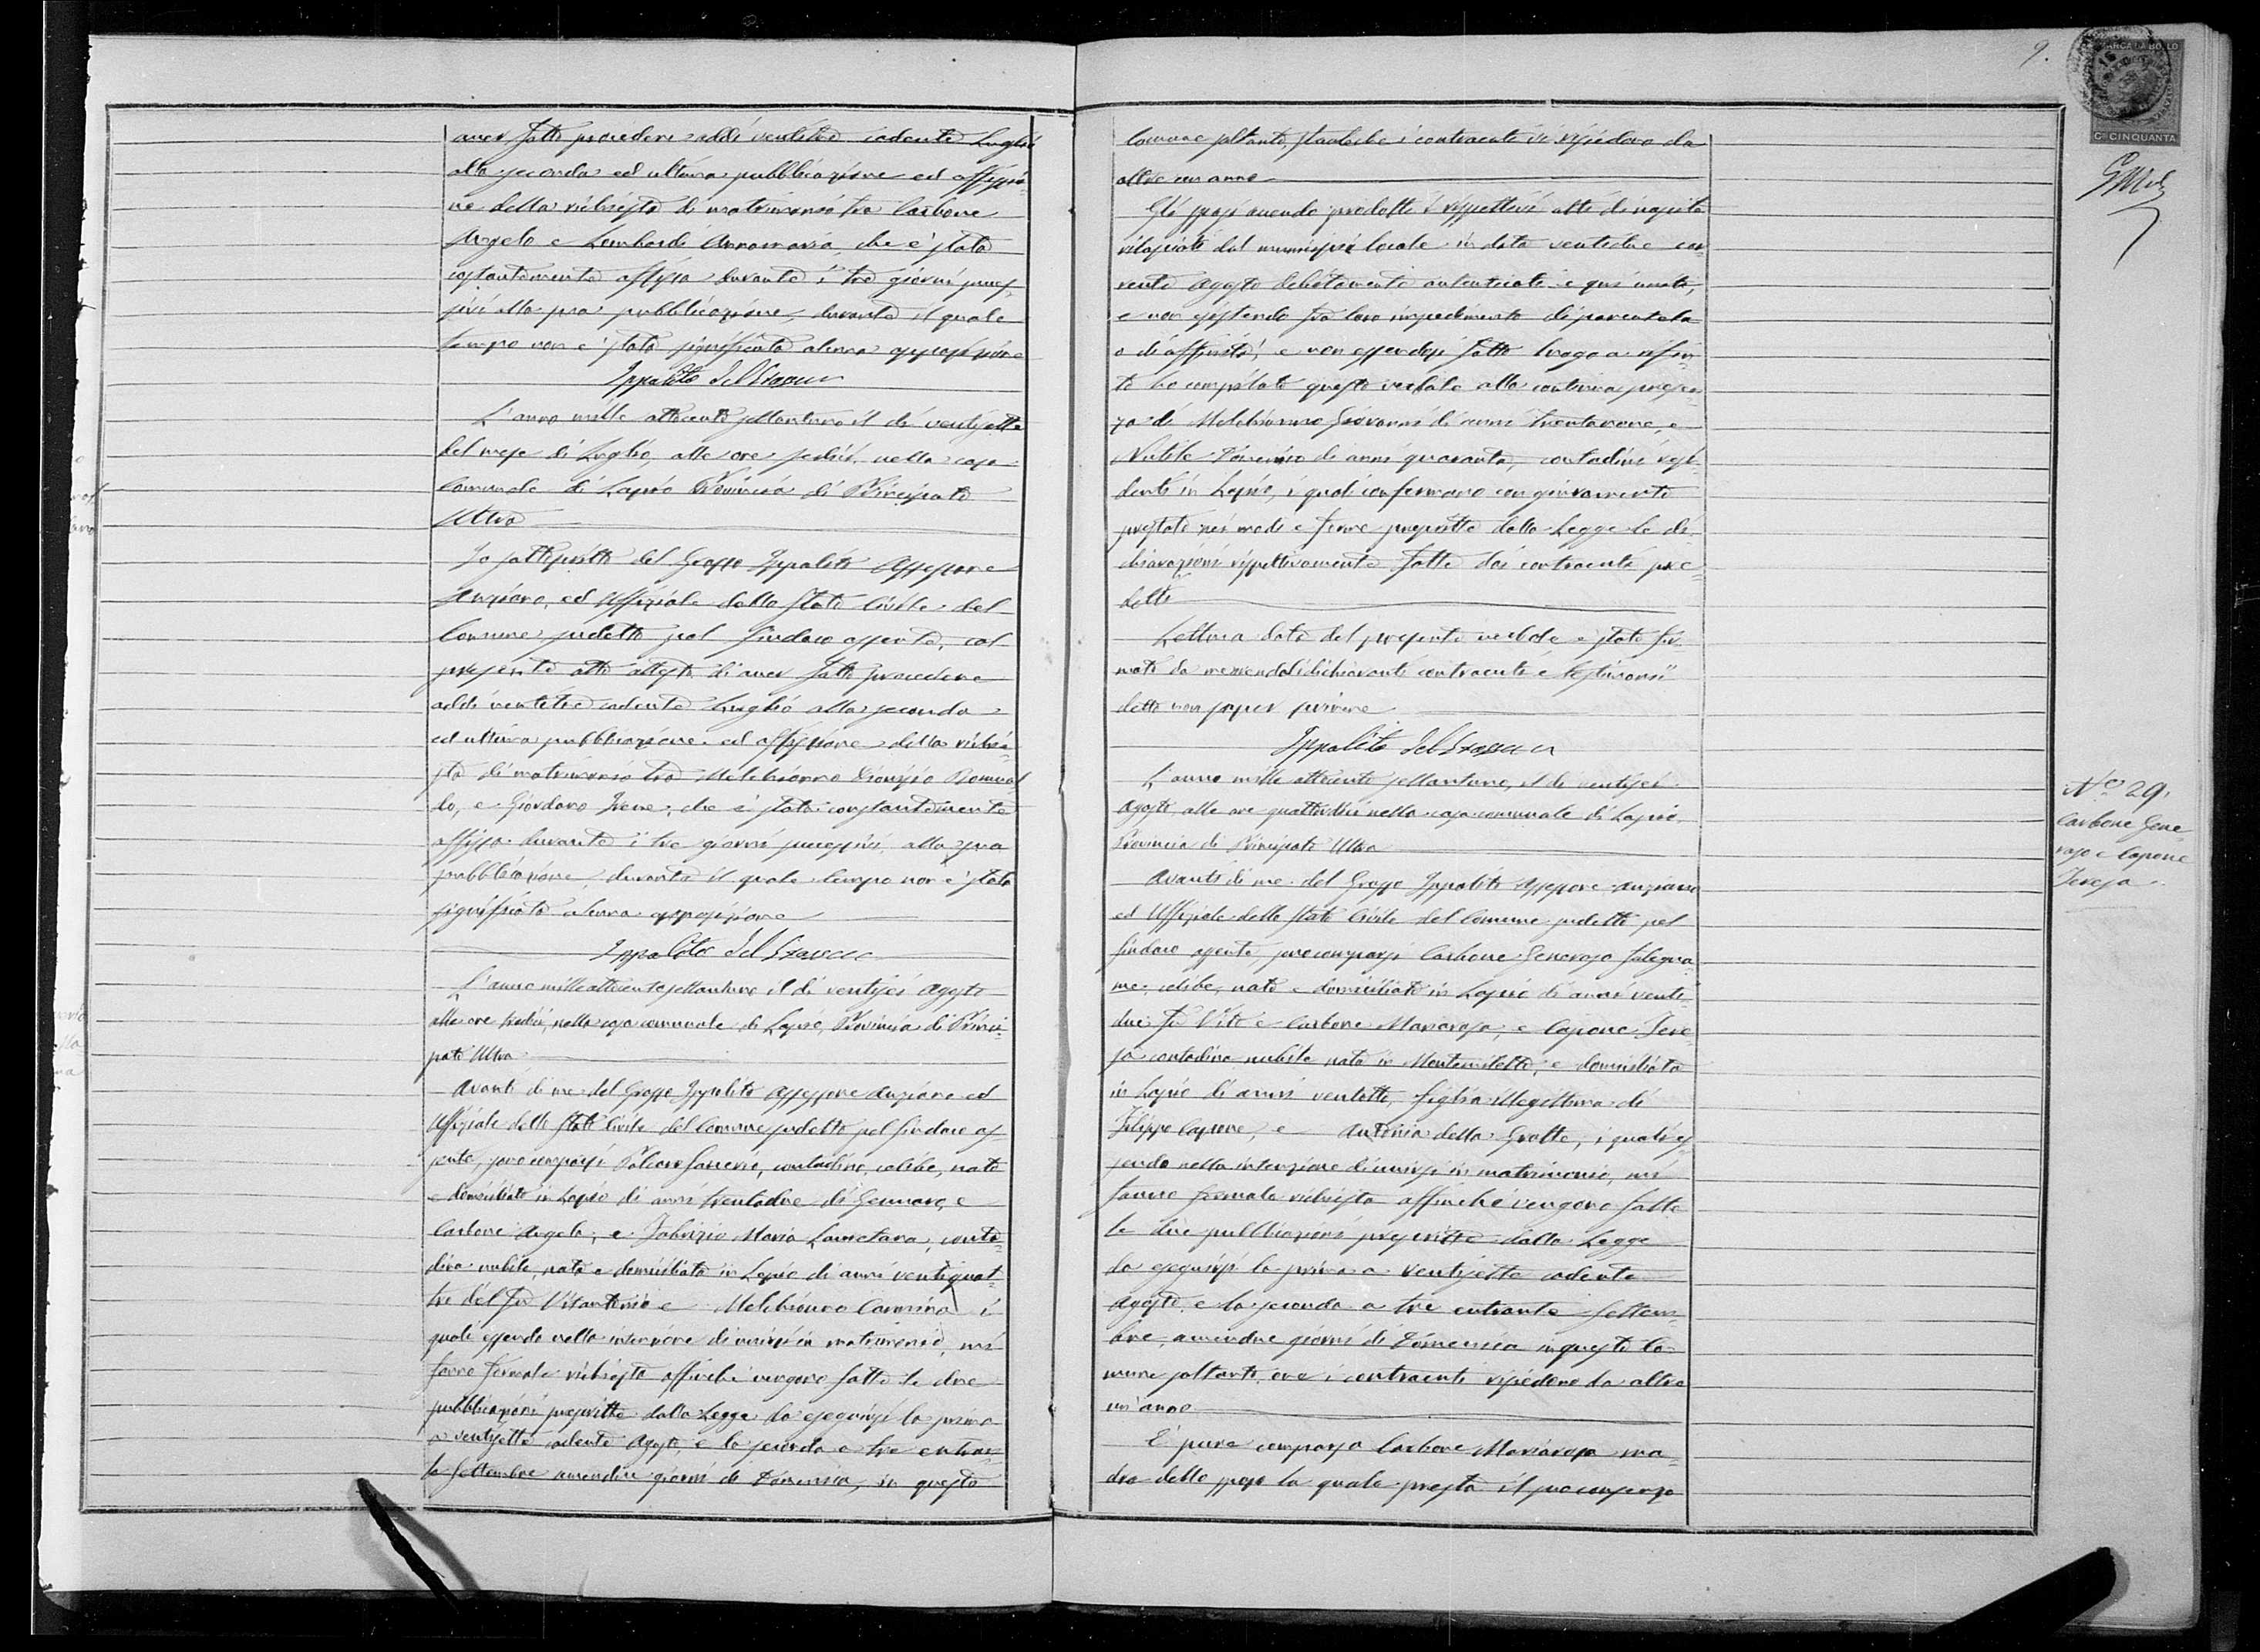 aver fatto procedere addì ventitrè cadente Luglio
alla seconda ed ultima pubblicazione ed affissio-
ne della richiesta di matrimonio tra Carbone
Angelo e Lombardi Annamaria, che è stata
costantemente affissa durante i tre giorni succes-
sivi alla sua pubblicazione, durante il quale
tempo non è stata significata alcuna opposizione
Ippolito del Grosso
L'anno mille ottocento settantuno il dì ventisette
del mese di Luglio, alle ore sedici nella casa
Comunale di Lapio Provincia di Principato
Ultra
Io sottoscritto del Grosso Ippolito Assessore
Anziano, ed Uffiziale dello Stato Civile del
Comune sudetto pel Sindaco assente, col
presente atto attesto di aver fatto procedere
addì ventitrè cadente Luglio alla seconda
ed ultima pubblicazione ed affissione della richie-
sta di matrimonio tra Melchionno Dionisio Romual
do, e Giordano Irene, che è stata costantemente
affissa durante i tre giorni successivi alla sua
pubblicazione, durante il quale tempo non è stata
significata alcuna opposizione
Ippolito del Grosso
L'anno mille ottocento settantuno il dì ventisei Agosto
alle ore tredici, nella casa comunale di Lapio, Provincia di Princi-
pato Ultra
Avanti di me del Grosso Ippolito Assessore Anziano ed
Uffiziale dello Stato Civile del Comune sudetto pel Sindaco as
sente, sono comparsi Saverio, contadino, celibe, nato
e domiciliato in Lapio di anni trentadue di Gennaro, e
Carbone Angela; e Fabrizio Maria Lauretana, conta-
dina nubile, nata e domiciliata in Lapio di anni ventiquat-
tro del fu Vitantonio e Melchionno Carmina i
quali essendo nella intenzione di unirsi in matrimonio, mi
fanno formale richiesta affinché vengano fatte le due
pubblicazioni prescritte dalla Legge da eseguirsi la prima
a ventisette cadente Agosto, e la seconda a tre entran-
te Settembre amendue giorni di Domenica, in questo
9.
MARCA DA BOLLO
C.mi CINQUANTA
Comune soltanto, stanteché i contraenti vi risiedono da
oltre un anno
Gli sposi avendo prodotti i rispettivi atti di nascita
rilasciati dal municipio locale in data ventidue cor-
rente Agosto debitamente autenticati e qui uniti,
e non esistendo fra loro impedimento di parentela
o di affinità, e non essendosi fatto luogo a rifiu-
to ho compilato questo verbale alla continua presen-
za di Melchionno Giovanni di anni trentanove, e
Nubile Domenico di anni quaranta, contadini resi-
denti in Lapio, i quali confermano con giuramento
prestato nei modi e forme prescritte dalla Legge le di-
chiarazioni rispettivamente fatte dai contraenti pre-
detti
Lettura data del presente verbale è stato fir-
mato da me avendo li dichiaranti contraenti e testimonii
detto non saper scrivere
Ippolito del Grosso
L'anno mille ottocento settantuno, il dì ventisei
Agosto, alle ore quattordici nella casa comunale di Lapio,
Provincia di Principato Ultra
Avanti di me del Grosso Ippolito Assessore Anziano
ed Uffiziale dello Stato Civile del Comune sudetto pel
Sindaco assente, sono comparsi Carbone Generoso falegna-
me, celibe, nato e domiciliato in Lapio di anni venti-
due fu Vito e Carbone Mariarosa, e Capone Tere-
sa contadina nubile nata in Montemiletto, e domiciliata
in Lapio di anni ventotto, figlia illegittima di
Filippo Capone, e Antonia della Grotta, i quali es
sendo nella intenzione di unirsi in matrimonio, mi
fanno formale richiesta affinché vengano fatte
le due pubblicazioni prescritte dalla Legge
da eseguirsi la prima a ventisette cadente
Agosto, e la seconda a tre entrante Settem-
bre, amendue giorni di Domenica in questo Co-
mune soltanto, ove i contraenti risiedono da oltre
un'anno
È pure comparsa Carbone Mariarosa ma-
dre dello sposo la quale presta il suo consenso
N.o 29.
Carbone Gene
roso e Capone
Teresa